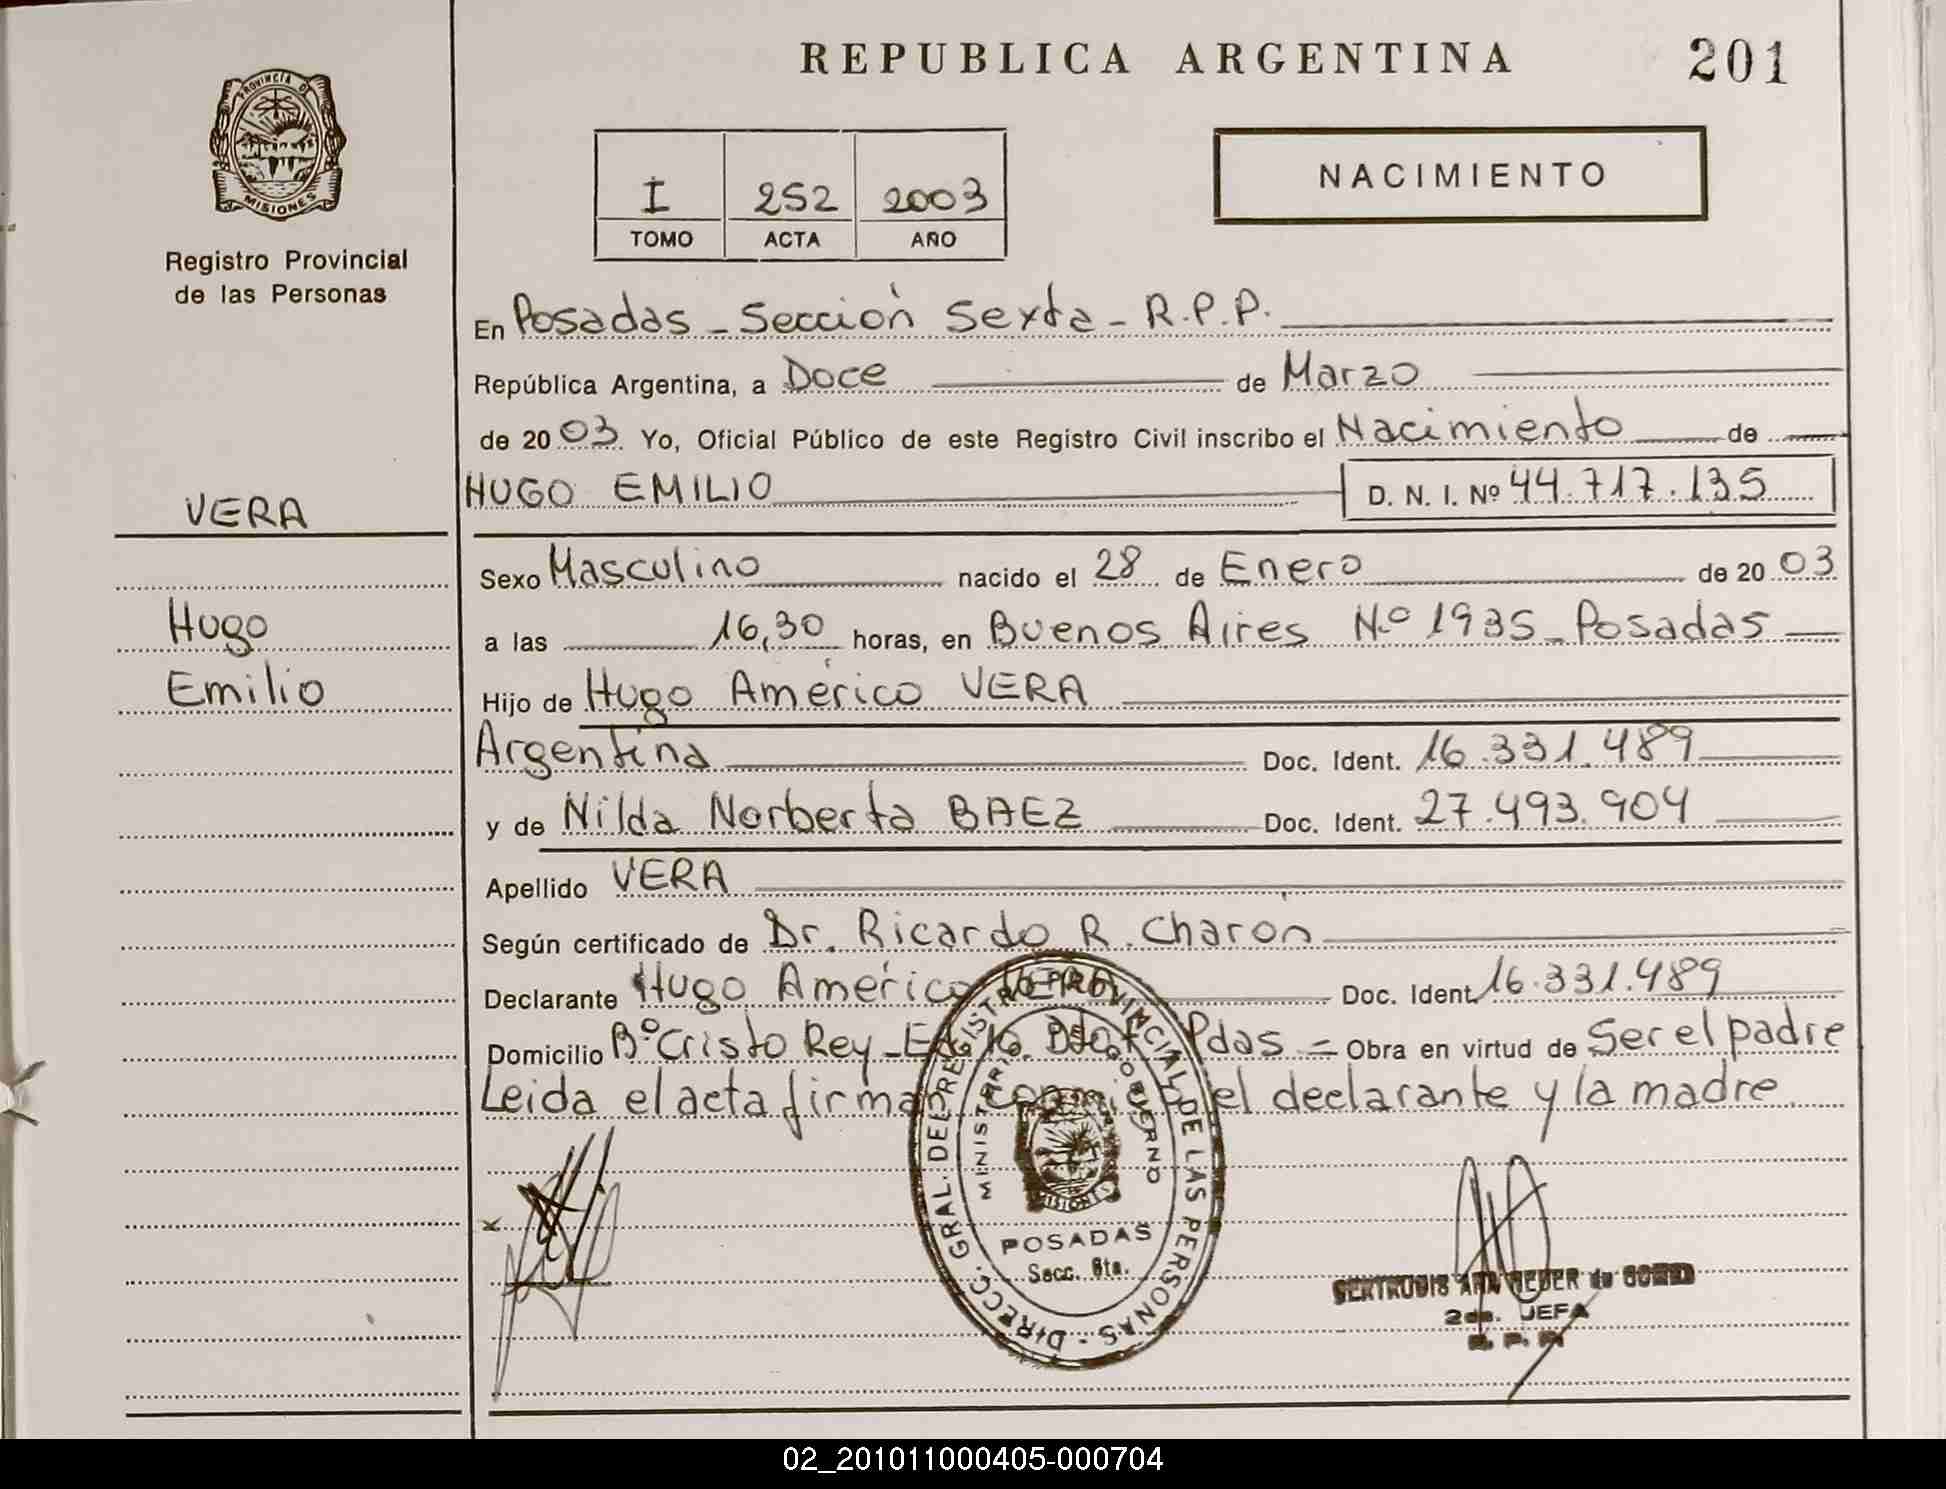 REPUBLICA ARGENTINA
201
PROVINCIA DE
MISIONES
Registro Provincial
de las Personas
I 252 2003
TOMO ACTA AÑO
NACIMIENTO
En Posadas - Sección Sexta - R.P.P.
República Argentina, a Doce de Marzo
de 2003 Yo, Oficial Público de este Registro Civil inscribo el Nacimiento de
HUGO EMILIO D. N. I. Nº 44.717.135
VERA
Sexo Masculino nacido el 28 de Enero de 2003
Hugo
a las 16,30 horas, en Buenos Aires N.º 1935 - Posadas
Emilio
Hijo de Hugo Américo VERA
Argentina Doc. Ident. 16.331.489
y de Nilda Norberta BAEZ Doc. Ident. 27.493.904
Apellido VERA
Según certificado de Dr. Ricardo R. Charon
Declarante Hugo Américo VERA Doc. Ident. 16.331.489
Domicilio Bº Cristo Rey - Pdas = Obra en virtud de Ser el padre
Leida el acta firman conmigo el declarante y la madre.
DIRECC. GRAL. DEL REGISTRO PROVINCIAL DE LAS PERSONAS
MINISTERIO GOBIERNO
MISIONES
POSADAS
Secc. 6ta.
x
GERTRUDIS
2da. JEFA
R. P. P.
02_201011000405-000704